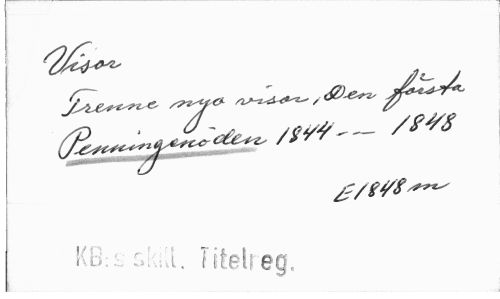 Visor
Trenne nya visor, Den första
Penningenöden 1844 -- 1848
E1848 m
KB:s skill. Titelreg.